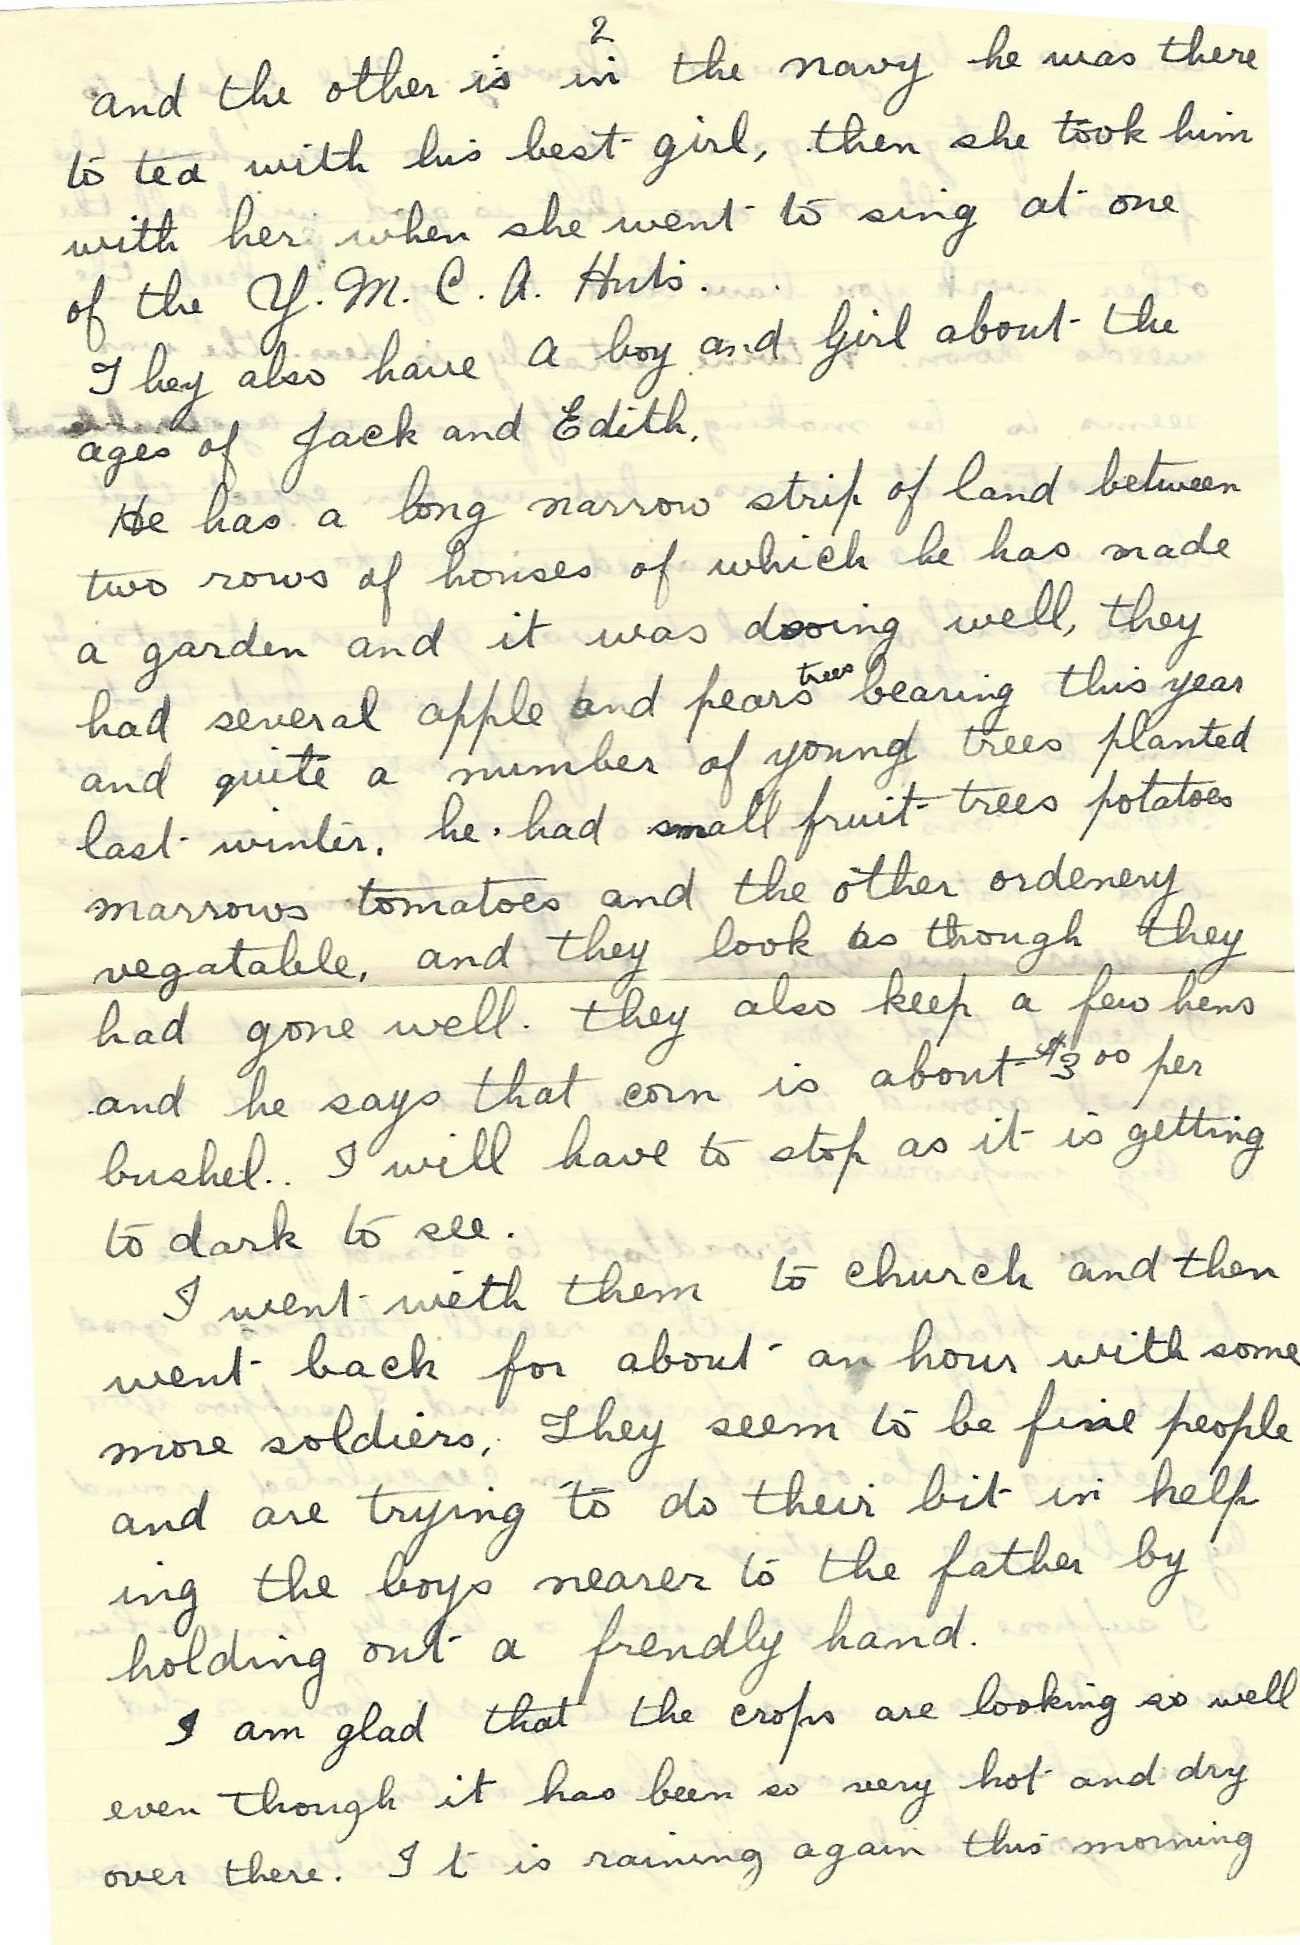 2
and the other is in the navy he was there
to tea with his best girl, then she took him
with her when she went to sing at one
of the Y. M. C. A. Huts.
They also have a boy and Girl about the
ages of Jack and Edith.
He has a long narrow strip of land between
two rows of houses of which he has made
a garden and it was dooing well, they
had several apple and pears trees bearing this year
and quite a number of young trees planted
last winter. he had small fruit trees potatoes
marrows tomatoes and the other ordenery
vegatable, and they look as though they
had gone well. they also keep a few hens
and he says that corn is about $3 00 per
bushel.. I will have to stop as it is getting
to dark to see.
I went with them to church and then
went back for about an hour with some
more soldiers, They seem to be fine people
and are trying to do their bit in help
ing the boys nearer to the father by
holding out a frendly hand.
I am glad that the crops are looking so well
even though it has been so very hot and dry
over there. It is raining again this morning